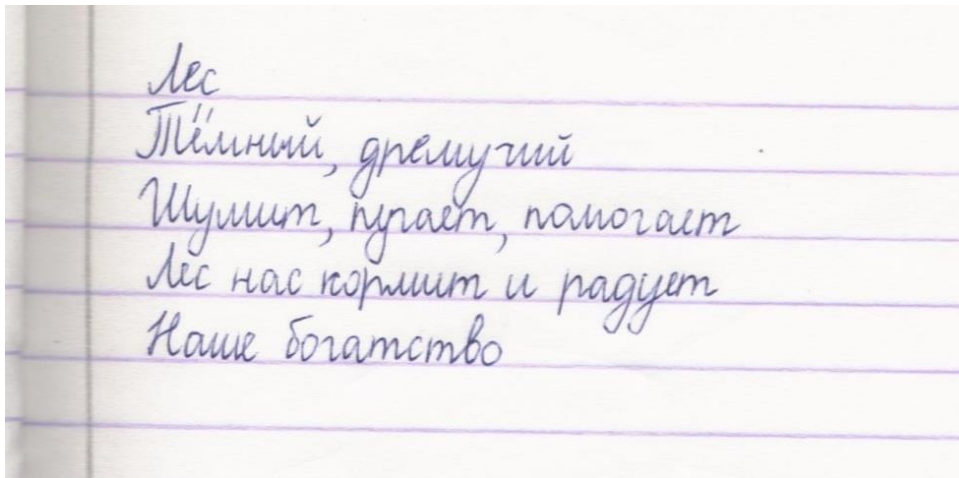 Лес
Тёмный, дремучий
Шумит, пугает, помогает
Лес нас кормит и радует
Наше богатство